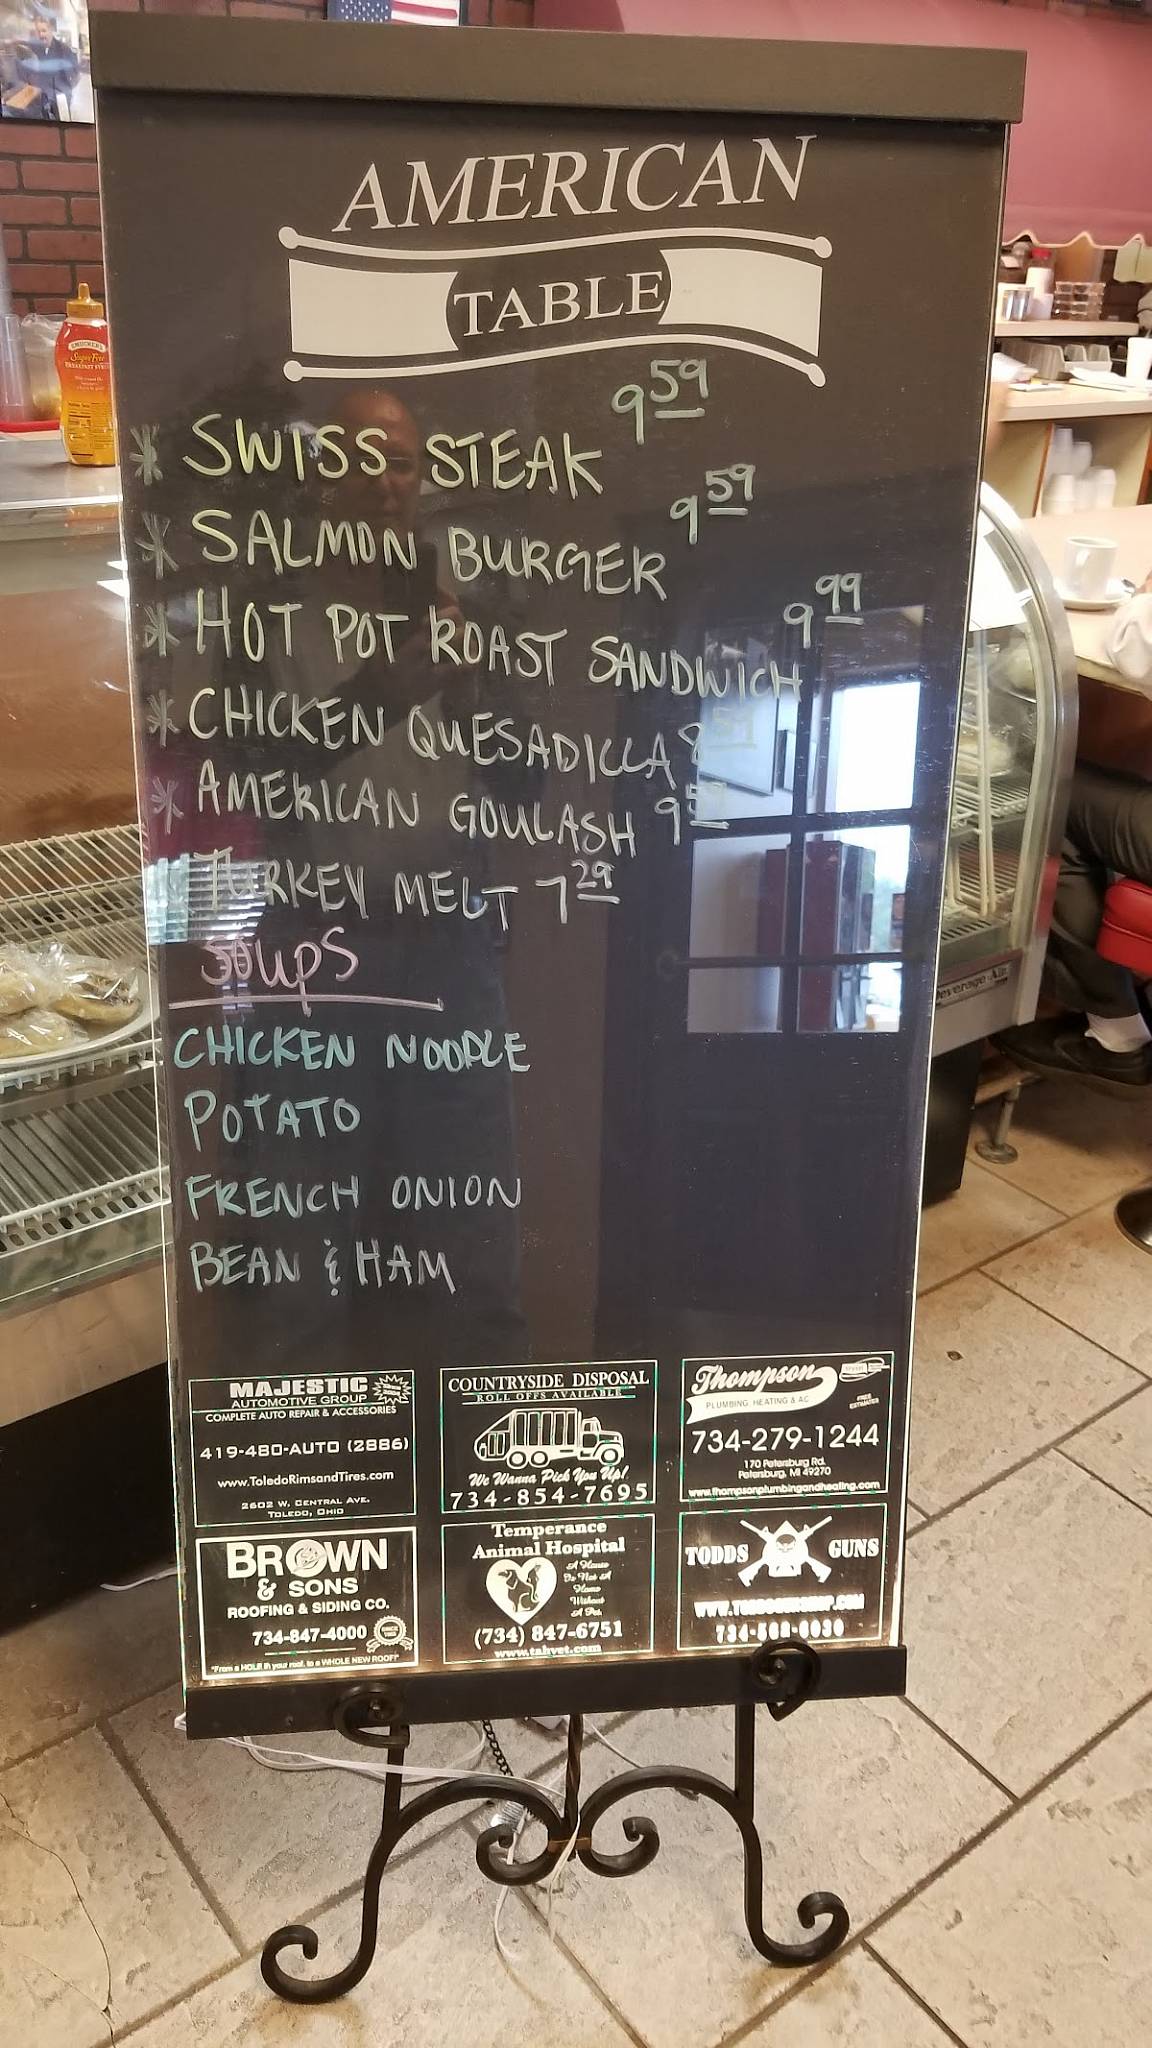 AMERICAN
TABLE
* SWISS STEAK 9 59
* SALMON BURGER 9 59
* HOT POT ROAST SANDWICH 9 99
* CHICKEN QUESADILLA 8 59
* AMERICAN GOULASH 9 59
TURKEY MELT 7 29
SOUPS
CHICKEN NOODLE
POTATO
FRENCH ONION
BEAN & HAM
MAJESTIC
AUTOMOTIVE GROUP
COMPLETE AUTO REPAIR & ACCESSORIES
419-480-AUTO (2886)
www.ToledoRimsandTires.com
2602 W. CENTRAL AVE.
TOLEDO, OHIO
COUNTRYSIDE DISPOSAL
ROLL OFFS AVAILABLE
We Wanna Pick You Up!
734-854-7695
Thompson
PLUMBING, HEATING & AC
FREE
ESTIMATES
734-279-1244
170 Petersburg Rd.
Petersburg, MI 49270
www.thompsonplumbingandheating.com
BROWN
& SONS
ROOFING & SIDING CO.
734-847-4000
"From a HOLE in your roof, to a WHOLE NEW ROOF!"
Temperance
Animal Hospital
A House
Is Not A
Home
Without
A Pet.
(734) 847-6751
www.tahvet.com
TODDS GUNS
SMUCKER'S
Sugar Free
BREAKFAST SYRUP
Beverage-Air